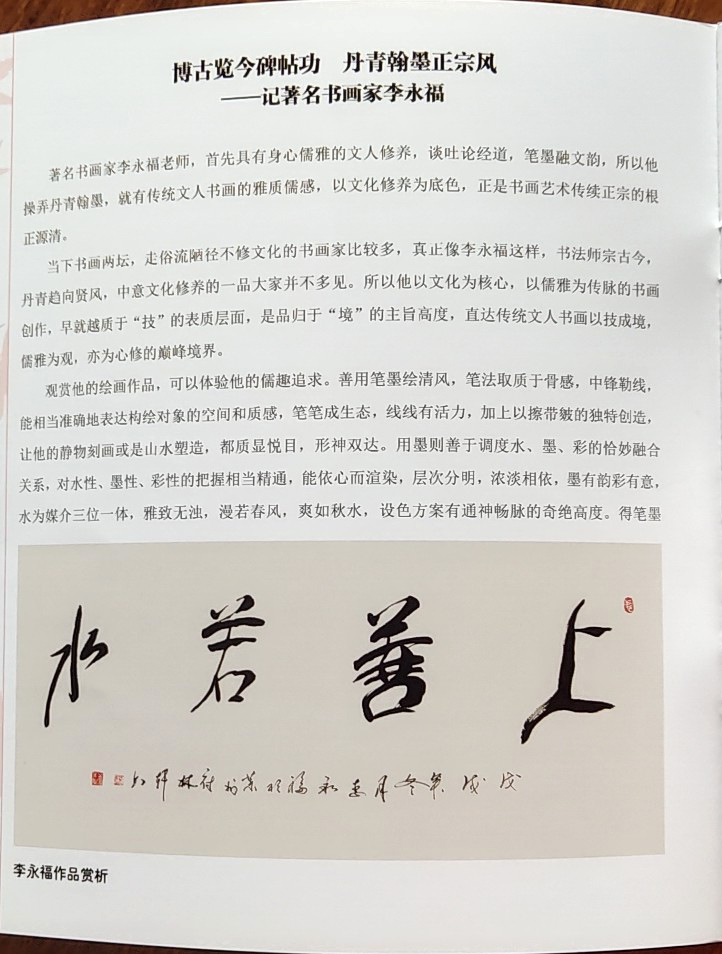 博古览今碑帖功　丹青翰墨正宗风
——记著名书画家李永福
著名书画家李永福老师，首先具有身心儒雅的文人修养，谈吐论经道，笔墨融文韵，所以他
操弄丹青翰墨，就有传统文人书画的雅质儒感，以文化修养为底色，正是书画艺术传续正宗的根
正源清。
当下书画两坛，走俗流陋径不修文化的书画家比较多，真正像李永福这样，书法师宗古今，
丹青趋向贤风，中意文化修养的一品大家并不多见。所以他以文化为核心，以儒雅为传脉的书画
创作，早就越质于“技”的表质层面，是品归于“境”的主旨高度，直达传统文人书画以技成境，
儒雅为观，亦为心修的巅峰境界。
观赏他的绘画作品，可以体验他的儒趣追求。善用笔墨绘清风，笔法取质于骨感，中锋勒线，
能相当准确地表达构绘对象的空间和质感，笔笔成生态，线线有活力，加上以擦带皴的独特创造，
让他的静物刻画或是山水塑造，都质显悦目，形神双达。用墨则善于调度水、墨、彩的恰妙融合
关系，对水性、墨性、彩性的把握相当精通，能依心而渲染，层次分明，浓淡相依，墨有韵彩有意，
水为媒介三位一体，雅致无浊，漫若春风，爽如秋水，设色方案有通神畅脉的奇绝高度。得笔墨
上善若水
戊戌年冬月李永福於
李永福作品赏析